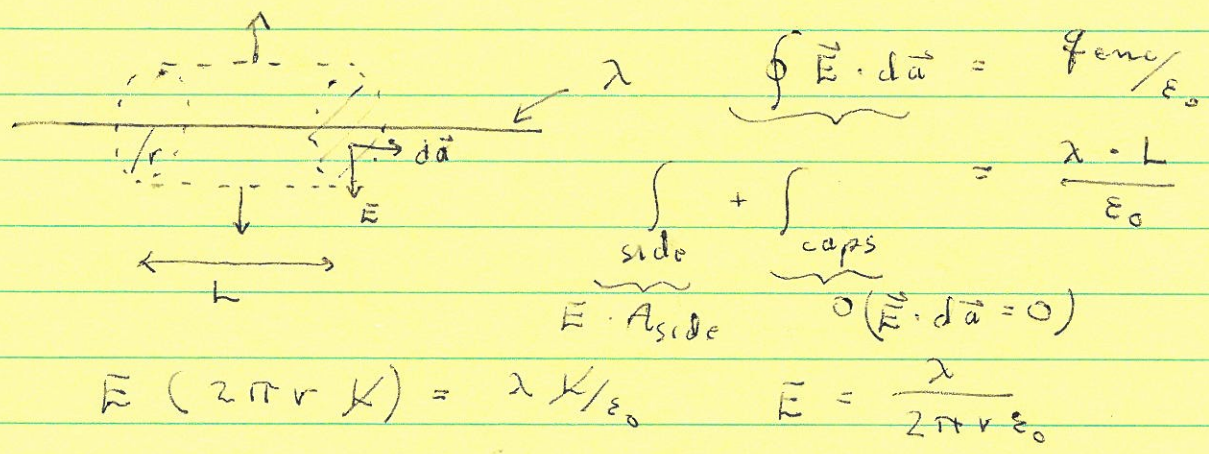 λ
∮ E⃗ · da⃗ = qenc/ε₀
r
da⃗
E
L
∫side + ∫caps = λ · L / ε₀
E · Aside 0 (E⃗ · da⃗ = 0)
E (2πr L) = λ L/ε₀ E = λ / 2πrε₀